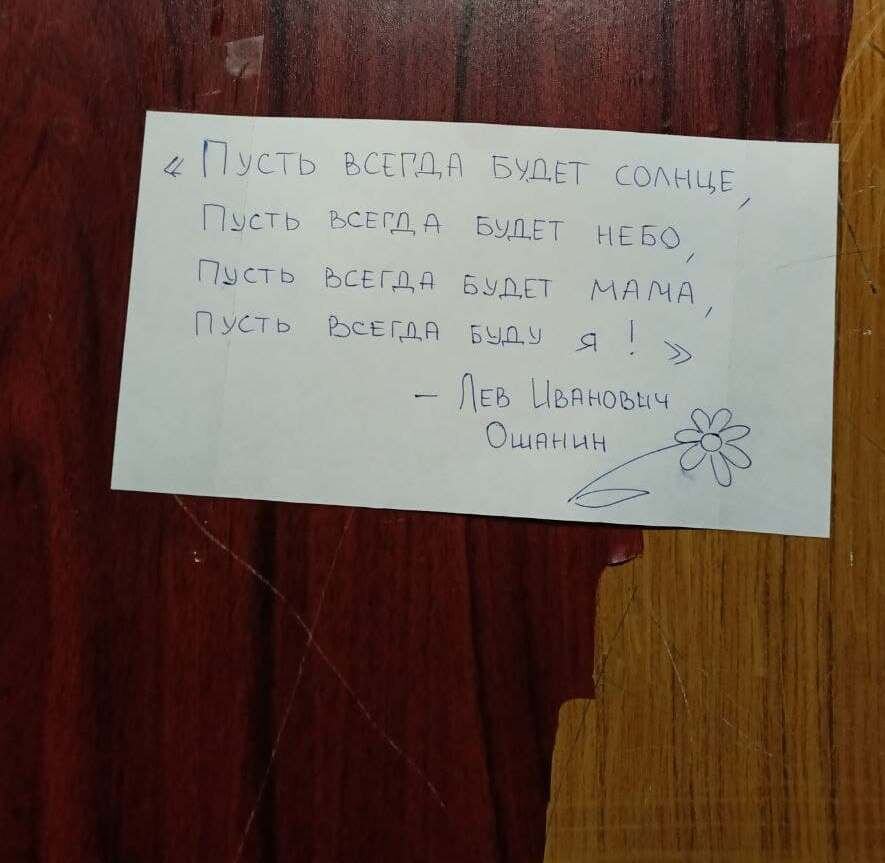 « Пусть всегда будет солнце,
Пусть всегда будет небо,
Пусть всегда будет мама,
Пусть всегда буду я ! »
– Лев Иванович
Ошанин